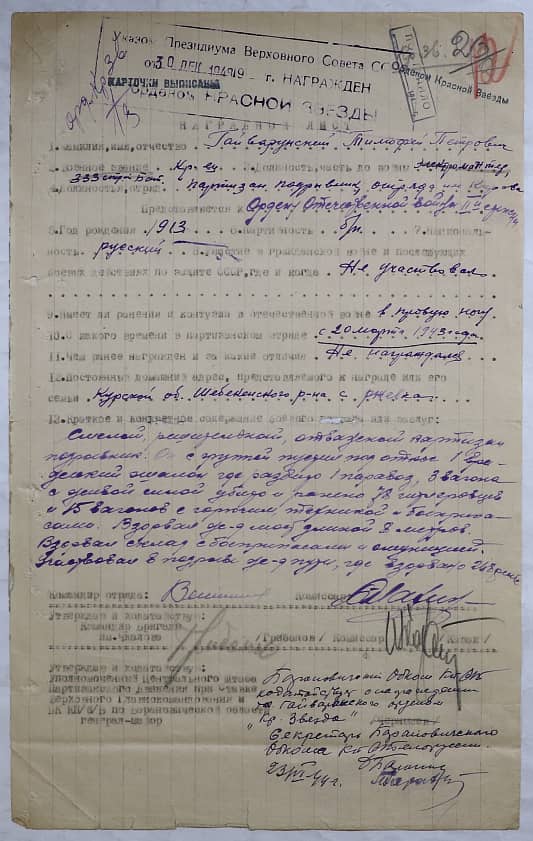 Указом Президиума Верховного Совета СССР
от 30 ДЕК 1948 г. НАГРАЖДЕН
Орденом Красной Звезды
КАРТОЧКИ ВЫПИСАНЫ
ОРДЕНОМ КРАСНОЙ ЗВЕЗДЫ
НАГРАДНОЙ ЛИСТ
1. Фамилия, имя, отчество Тимофей Петрович
2. Военное звание Кр-ец 3. Должность, часть до войны электромонтер,
4. Должность, отряд партизан подрывник, отряда им. Кирова
Представляется к Ордену Отечественной войны IIй степени
5. Год рождения 1913 6. партийность б/п. 7. Националь-
ность русский 8. Участие в гражданской войне и последующих
боевых действиях по защите СССР, где и когда Не участвовал
9. Имеет ли ранения и контузии в отечественной войне в правую ногу.
10. С какого времени в партизанском отряде с 20 марта 1943 года.
11. Чем ранее награжден и за какие отличия Не награждался
12. Постоянный домашний адрес, представляемого к награде или его
семьи Курской об. Шебекенского р-на с. Ржевка
13. Краткое и конкретное содержание боевого подвига или заслуг:
Смелый, решительный, отважный партизан
подрывник. Он с группой пустил под откос 1 вра-
жеский эшалон где разбито 1 паровоз, 3 вагона
с живой силой убито и ранено гитлеровцев
и 15 вагонов с горючим техникой и боеприпа-
сами. Взорвал ж-д мост длиной 8 метров.
Взорвал склад с боеприпасами и амуницией.
Участвовал в подрыве ж-д пути, где взорвано рельс
Командир отряда: Комиссар
Утверждаю и ходатайствую:
Командир бригады
им. Чкалова /Грибанов/ Комиссар /Китов/
Утверждаю и ходатайствую:
Уполномоченный Центрального штаба
Партизанского движения при Ставке
Верховного Главнокомандования и
ЦК КП/б/Б по Барановичской области
генерал-майор /Чернышев/
Барановичский Обком КП(б)Б
ходатайствует о награждении
орденом
"Кр. Звезда"
Секретарь Барановичского
Обкома КП(б)Белоруссии.